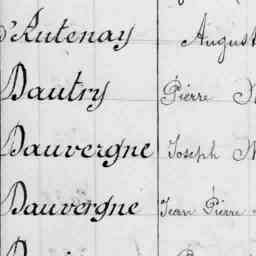 d'Autenay August
Dautry Pierre
Dauvergne Joseph
Dauvergne Jean Pierre